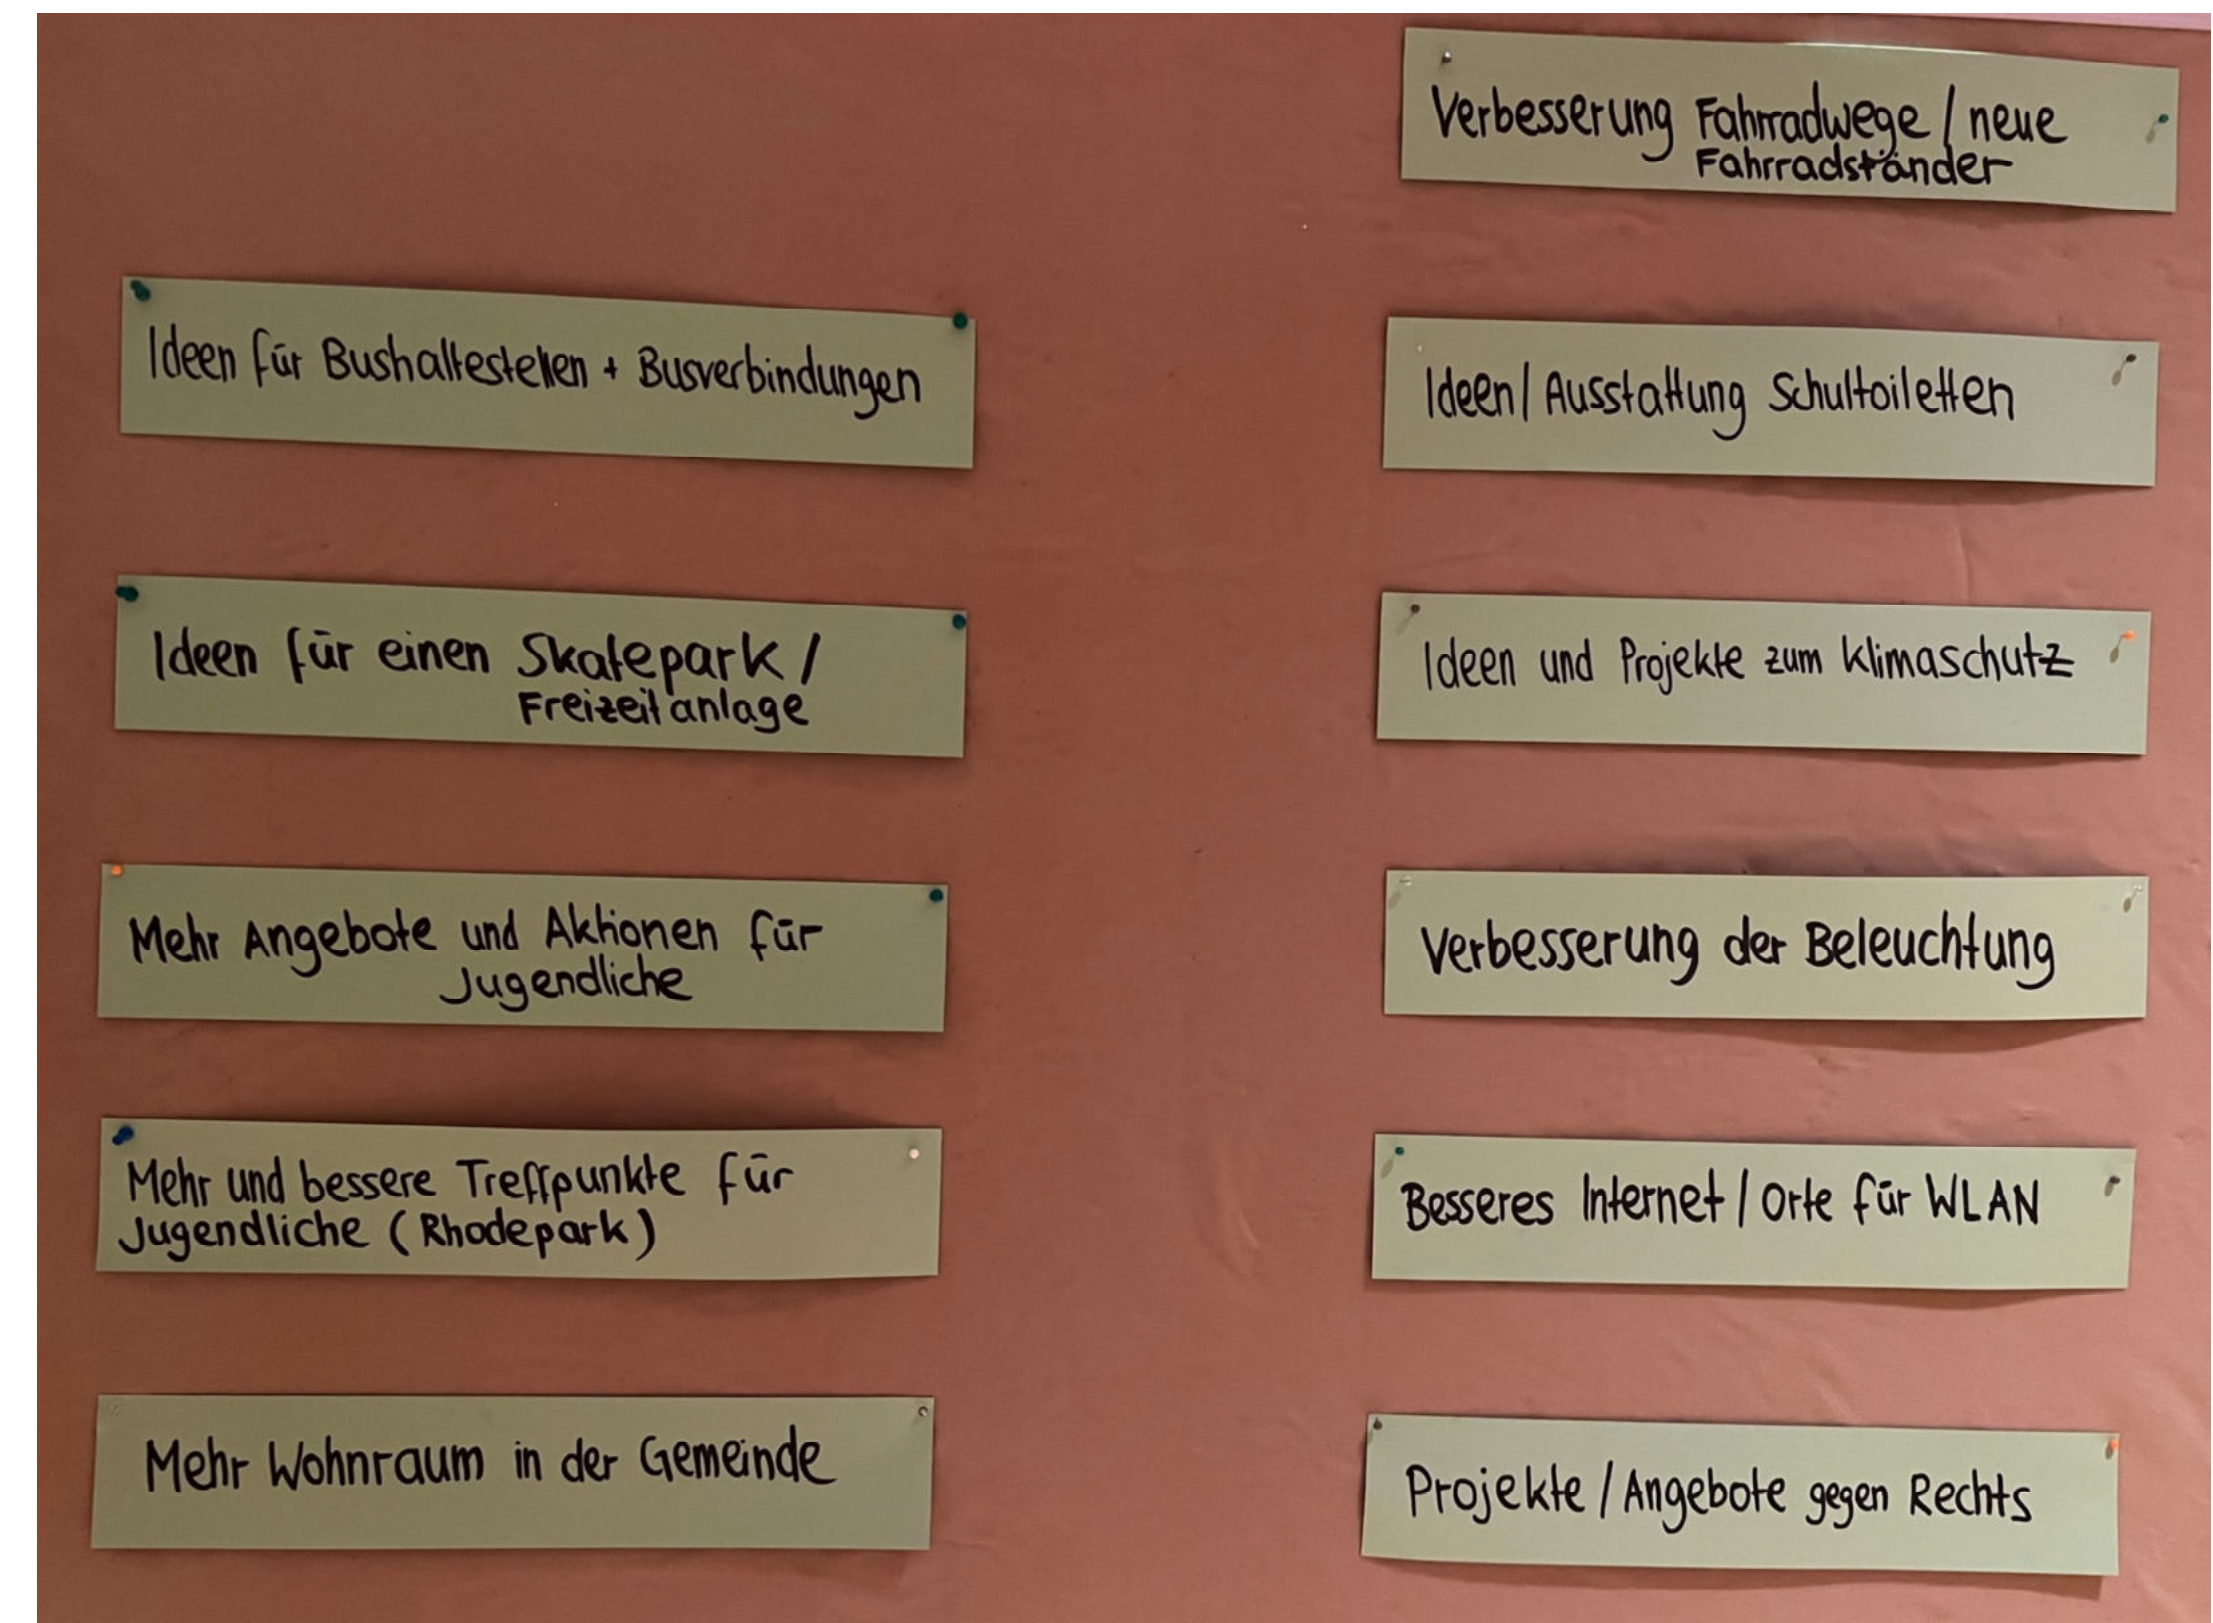 Ideen für Bushaltestellen + Busverbindungen
Ideen für einen Skatepark /
Freizeitanlage
Mehr Angebote und Aktionen für
Jugendliche
Mehr und bessere Treffpunkte für
Jugendliche (Rhodepark)
Mehr Wohnraum in der Gemeinde
Verbesserung Fahrradwege / neue
Fahrradständer
Ideen / Ausstattung Schultoiletten
Ideen und Projekte zum Klimaschutz
Verbesserung der Beleuchtung
Besseres Internet / Orte für WLAN
Projekte / Angebote gegen Rechts